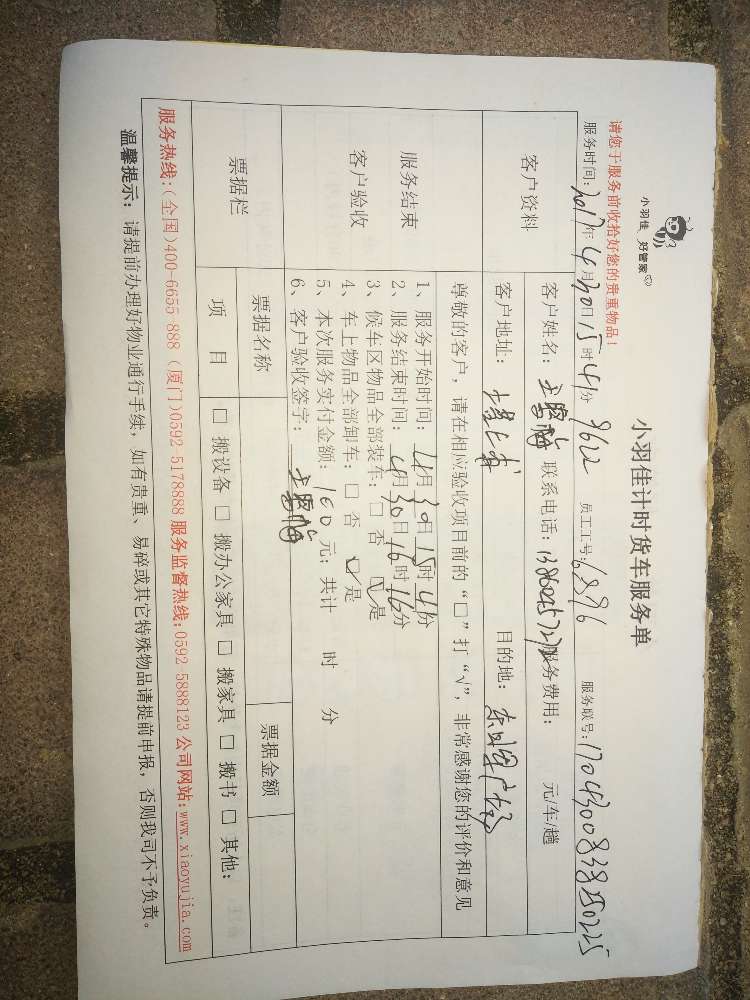 小羽佳 好管家
小羽佳计时货车服务单
请您于服务前收拾好您的贵重物品！
服务时间：2017年4月30日15时41分 9622 员工工号：6896 服务联号：
客户资料
客户姓名： 联系电话： 服务费用： 元/车/趟
客户地址： 目的地：
服务结束
客户验收
尊敬的客户，请在相应验收项目前的“□”打“√”，非常感谢您的评价和意见
1、服务开始时间：4月30日15时41分
2、服务结束时间：4月30日16时16分
3、候车区物品全部装车：□ 否 ☑ 是
4、车上物品全部卸车：□ 否 ☑ 是
5、本次服务实付金额：160元；共计 时 分
6、客户验收签字：
票据栏
票据名称 票据金额
项 目 □ 搬设备 □ 搬办公家具 □ 搬家具 □ 搬书 □ 其他：
服务热线：(全国)400-6655 888 (厦门)0592-5178888 服务监督热线：0592-5888123 公司网站：www.xiaoyujia.com
温馨提示：请提前办理好物业通行手续，如有贵重、易碎或其它特殊物品请提前申报，否则我司不予负责。